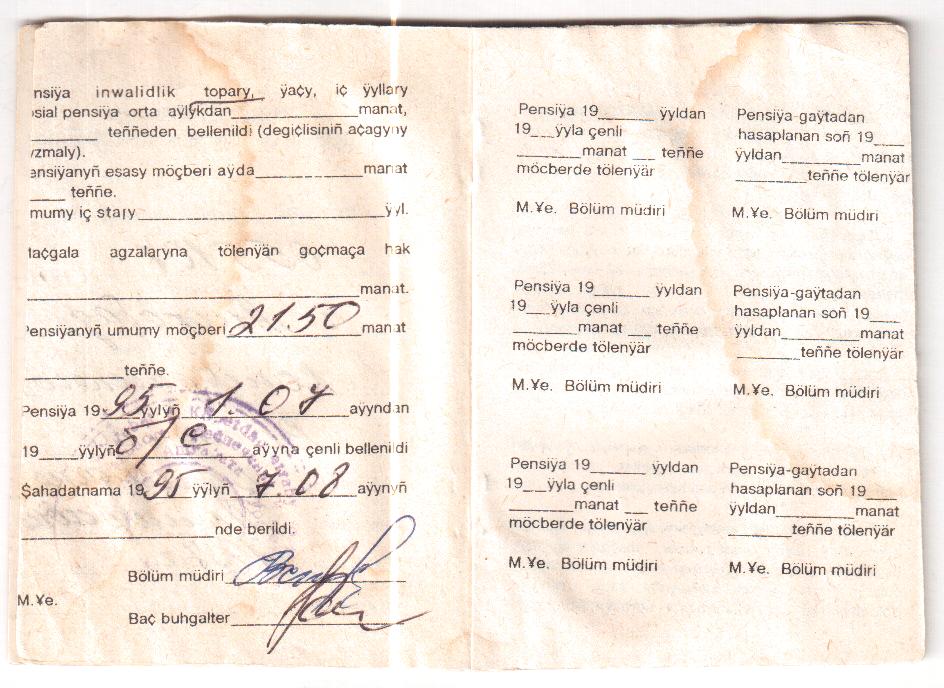 nsiÿa inwalidlik topary, ÿaçy, iç ÿyllary
sial pensiÿa orta aÿlykdan____________manat,
________ teññeden bellenildi (degiçlisiniñ açagyny
yzmaly).
ensiÿanyñ esasy möçberi aÿda____________manat
_____ teññe.
mumy iç stary____________________________ÿyl.
taçgala agzalaryna tölenÿän goçmaça hak
____________________________________manat.
ensiÿanyñ umumy möçberi 2150 manat
____________teññe.
Pensiÿa 19 95 ÿylyñ 1. 07 aÿyndan
19____ÿylyñ б/с aÿyna çenli bellenildi
Şahadatnama 19 95 ÿylyñ 7.08 aÿynyñ
_______________________nde berildi.
Bölüm müdiri
M.¥e.
Baç buhgalter
Pensiÿa 19_______ ÿyldan
19___ÿyla çenli
________manat ___ teññe
möcberde tölenÿär
M.¥e. Bölüm müdiri
Pensiÿa-gaÿtadan
hasaplanan soñ 19____
ÿyldan__________manat
_________teññe tölenÿär
M.¥e. Bölüm müdiri
Pensiÿa 19_______ ÿyldan
19___ÿyla çenli
________manat ___ teññe
möcberde tölenÿär
M.¥e. Bölüm müdiri
Pensiÿa-gaÿtadan
hasaplanan soñ 19____
ÿyldan__________manat
_________teññe tölenÿär
M.¥e. Bölüm müdiri
Pensiÿa 19_______ ÿyldan
19___ÿyla çenli
________manat ___ teññe
möcberde tölenÿär
M.¥e. Bölüm müdiri
Pensiÿa-gaÿtadan
hasaplanan soñ 19____
ÿyldan__________manat
_________teññe tölenÿär
M.¥e. Bölüm müdiri